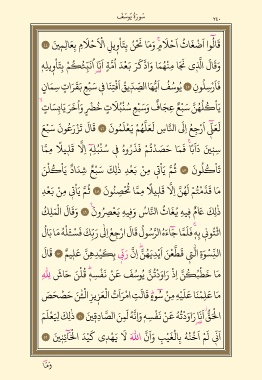 سُورَةُ يُوسُفَ
٢٤٠
قَالُٓوا اَضْغَاثُ اَحْلَامٍۚ وَمَا نَحْنُ بِتَأْوٖيلِ الْاَحْلَامِ بِعَالِمٖينَ
وَقَالَ الَّذٖي نَجَا مِنْهُمَا وَادَّكَرَ بَعْدَ اُمَّةٍ اَنَا۬ اُنَبِّئُكُمْ بِتَأْوٖيلِهٖ
فَاَرْسِلُونِ يُوسُفُ اَيُّهَا الصِّدّٖيقُ اَفْتِنَا فٖي سَبْعِ بَقَرَاتٍ سِمَانٍ
يَأْكُلُهُنَّ سَبْعٌ عِجَافٌ وَسَبْعِ سُنْبُلَاتٍ خُضْرٍ وَاُخَرَ يَابِسَاتٍۙ
لَعَلّٖٓي اَرْجِعُ اِلَى النَّاسِ لَعَلَّهُمْ يَعْلَمُونَ قَالَ تَزْرَعُونَ سَبْعَ
سِنٖينَ دَاَبًاۚ فَمَا حَصَدْتُمْ فَذَرُوهُ فٖي سُنْبُلِهٖٓ اِلَّا قَلٖيلًا مِمَّا
تَأْكُلُونَ ثُمَّ يَأْتٖي مِنْ بَعْدِ ذٰلِكَ سَبْعٌ شِدَادٌ يَأْكُلْنَ
مَا قَدَّمْتُمْ لَهُنَّ اِلَّا قَلٖيلًا مِمَّا تُحْصِنُونَ ثُمَّ يَأْتٖي مِنْ بَعْدِ
ذٰلِكَ عَامٌ فٖيهِ يُغَاثُ النَّاسُ وَفٖيهِ يَعْصِرُونَ وَقَالَ الْمَلِكُ
ائْتُونٖي بِهٖۚ فَلَمَّا جَٓاءَهُ الرَّسُولُ قَالَ ارْجِعْ اِلٰى رَبِّكَ فَسْـَٔلْهُ مَا بَالُ
النِّسْوَةِ الّٰتٖي قَطَّعْنَ اَيْدِيَهُنَّۜ اِنَّ رَبّٖي بِكَيْدِهِنَّ عَلٖيمٌ قَالَ
مَا خَطْبُكُنَّ اِذْ رَاوَدْتُنَّ يُوسُفَ عَنْ نَفْسِهٖۜ قُلْنَ حَاشَ لِلّٰهِ
مَا عَلِمْنَا عَلَيْهِ مِنْ سُٓوءٍۜ قَالَتِ امْرَاَتُ الْعَزٖيزِ الْـٰٔنَ حَصْحَصَ
الْحَقُّۘ اَنَا۬ رَاوَدْتُهُ عَنْ نَفْسِهٖ وَاِنَّهُ لَمِنَ الصَّادِقٖينَ ذٰلِكَ لِيَعْلَمَ
اَنّٖي لَمْ اَخُنْهُ بِالْغَيْبِ وَاَنَّ اللّٰهَ لَا يَهْدٖي كَيْدَ الْخَٓائِنٖينَ
وَمَٓا